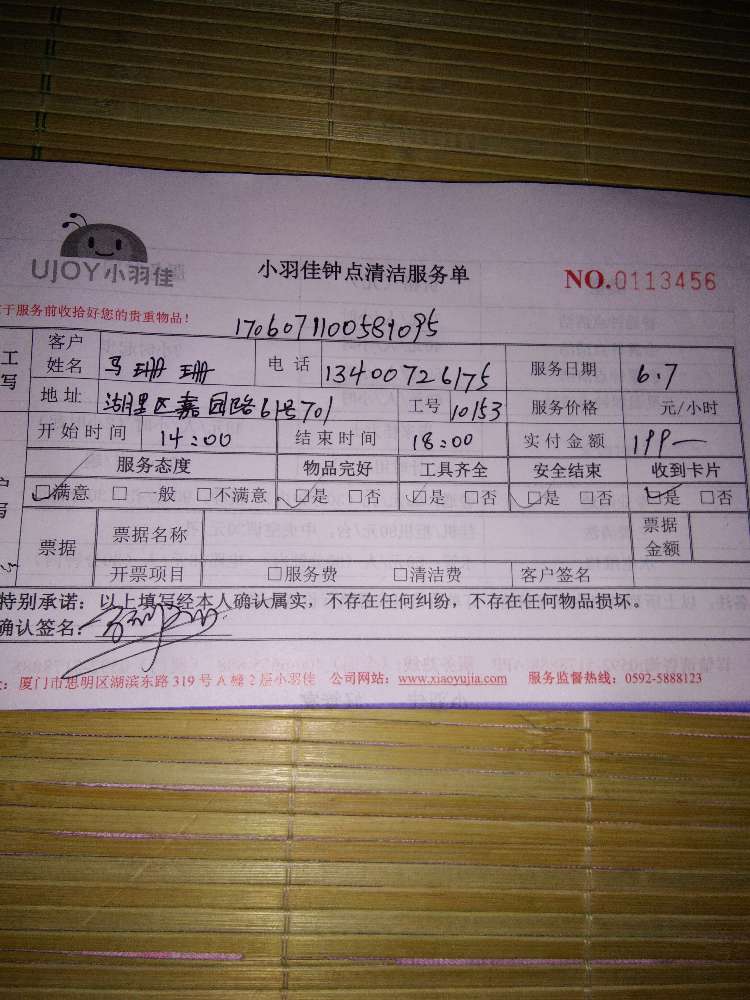 UJOY小羽佳
小羽佳钟点清洁服务单
NO.0113456
于服务前收拾好您的贵重物品!
1706071100581095
工 客户姓名 马珊珊 电话 13400726175 服务日期 6.7
写 地址 湖里区嘉园路61号701 工号 10153 服务价格 元/小时
开始时间 14:00 结束时间 18:00 实付金额 199一
服务态度 物品完好 工具齐全 安全结束 收到卡片
☑满意 □一般 □不满意 ☑是 □否 ☑是 □否 ☑是 □否 ☑是 □否
票据 票据名称 票据金额
开票项目 □服务费 □清洁费 客户签名
特别承诺:以上填写经本人确认属实,不存在任何纠纷,不存在任何物品损坏。
确认签名:
:厦门市思明区湖滨东路319号A幢2层小羽佳 公司网站:www.xiaoyujia.com 服务监督热线:0592-5888123